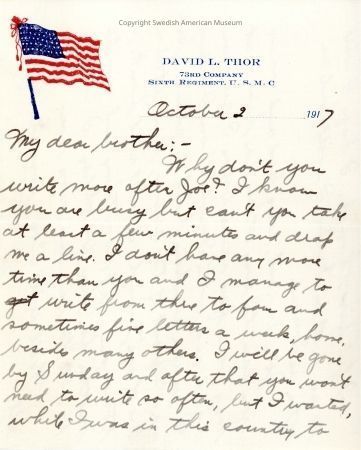 Copyright Swedish American Museum
DAVID L. THOR
73RD COMPANY
SIXTH REGIMENT, U. S. M. C
October 2 1917
My dear brother:-
Why don't you
write more after Joe? I know
you are busy but can't you take
at least a few minutes and drop
me a line. I don't have any more
time than you and I manage to
write from three to four and
sometimes five letters a week, home,
besides many others. I will be gone
by Sunday and after that you won't
need to write so often, but I wanted,
while I was in this country to